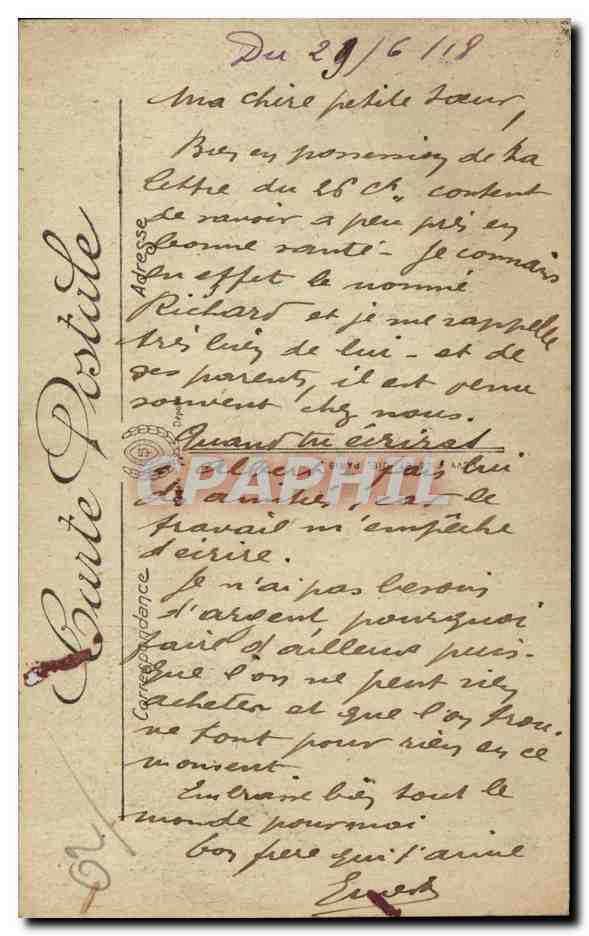 Du 29/6/18
Ma chère petite sœur,
Bien en possession de ta
lettre du 26 ct, content
de savoir à peu près en
bonne santé - Je connais
en effet le nommé
Richard et je me rappelle
très bien de lui - et de
ses parents, il est venu
souvent chez nous.
Quand tu écriras
pas lui
d'amitiés, car le
travail m'empêche
d'écrire.
Je n'ai pas besoin
d'argent pourquoi
faire d'ailleurs puis-
que l'on ne peut rien
acheter et que l'on trou-
ve tout pour rien en ce
moment
Embrasse bien tout le
monde pour moi
Ton frère qui t'aime
Ernest
Carte Postale
Adresse
Correspondance
CPAPHIL
62